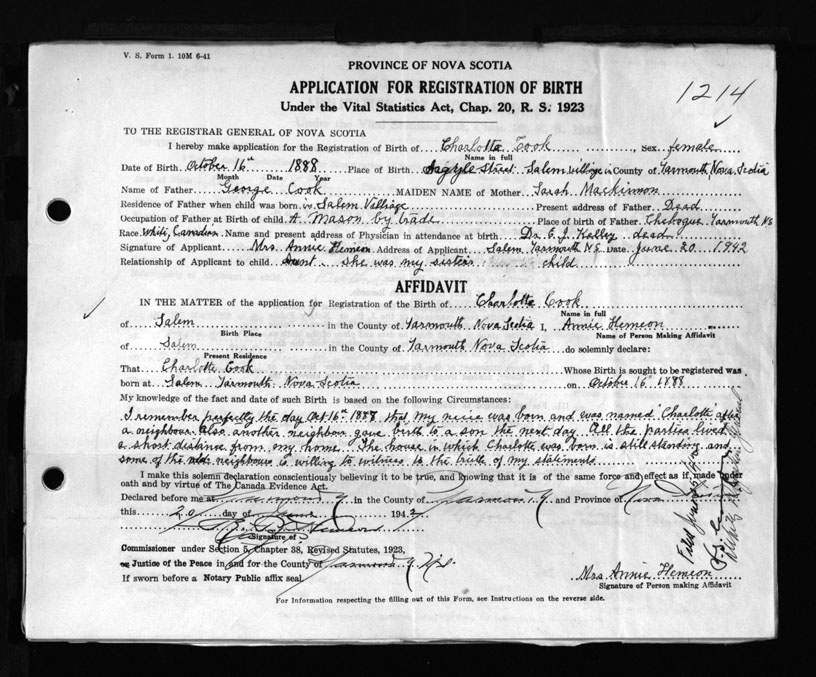 V. S. Form 1. 10M 6-41
PROVINCE OF NOVA SCOTIA
APPLICATION FOR REGISTRATION OF BIRTH
Under the Vital Statistics Act, Chap. 20, R. S. 1923
1214
TO THE REGISTRAR GENERAL OF NOVA SCOTIA
I hereby make application for the Registration of Birth of Charlotta Cook, Sex female
Name in full
Date of Birth October 16th 1888 Place of Birth Argyle Street Salem Village in County of Yarmouth Nova Scotia
Month Date Year
Name of Father George Cook MAIDEN NAME of Mother Sarah Mackinnon
Residence of Father when child was born in Salem Village Present address of Father Dead
Occupation of Father at Birth of child A Mason by trade Place of Birth of Father Chebogue Yarmouth NS
Race White, Canadian Name and present address of Physician in attendance at birth Dr. E. J. Kelley dead
Signature of Applicant Mrs. Annie Hemeon Address of Applicant Salem Yarmouth N S Date June 20 1942
Relationship of Applicant to child Aunt. She was my sisters child
AFFIDAVIT
IN THE MATTER of the application for Registration of the Birth of Charlotta Cook
Name in full
of Salem in the County of Yarmouth Nova Scotia I, Annie Hemeon
Birth Place Name of Person Making Affidavit
of Salem in the County of Yarmouth Nova Scotia do solemnly declare:
Present Residence
That Charlotte Cook Whose Birth is sought to be registered was
born at Salem Yarmouth Nova Scotia on October 16th 1888
My knowledge of the fact and date of such Birth is based on the following Circumstances:
I remember perfectly the day Oct 16th 1888 that my neice was born and was named "Charlotte" after
a neighbour. Also another neighbour gave birth to a son the next day. All the parties lived
a short distince from my home. The house in which Charlotte was born is still standing and
some of the old neighbours is willing to witness to the truth of my statements
I make this solemn declaration conscientiously believing it to be true, and knowing that it is of the same force and effect as if made under
oath and by virtue of The Canada Evidence Act.
Declared before me at Yarmouth in the County of Yarmouth and Province of Nova Scotia
this 20 day of June 1942
Signature of
Commissioner under Section 5, Chapter 38, Revised Statutes, 1923,
or Justice of the Peace in and for the County of Yarmouth N.S.
If sworn before a Notary Public affix seal
Mrs Annie Hemeon
Signature of Person making Affidavit
For Information respecting the filling out of this Form, see Instructions on the reverse side.